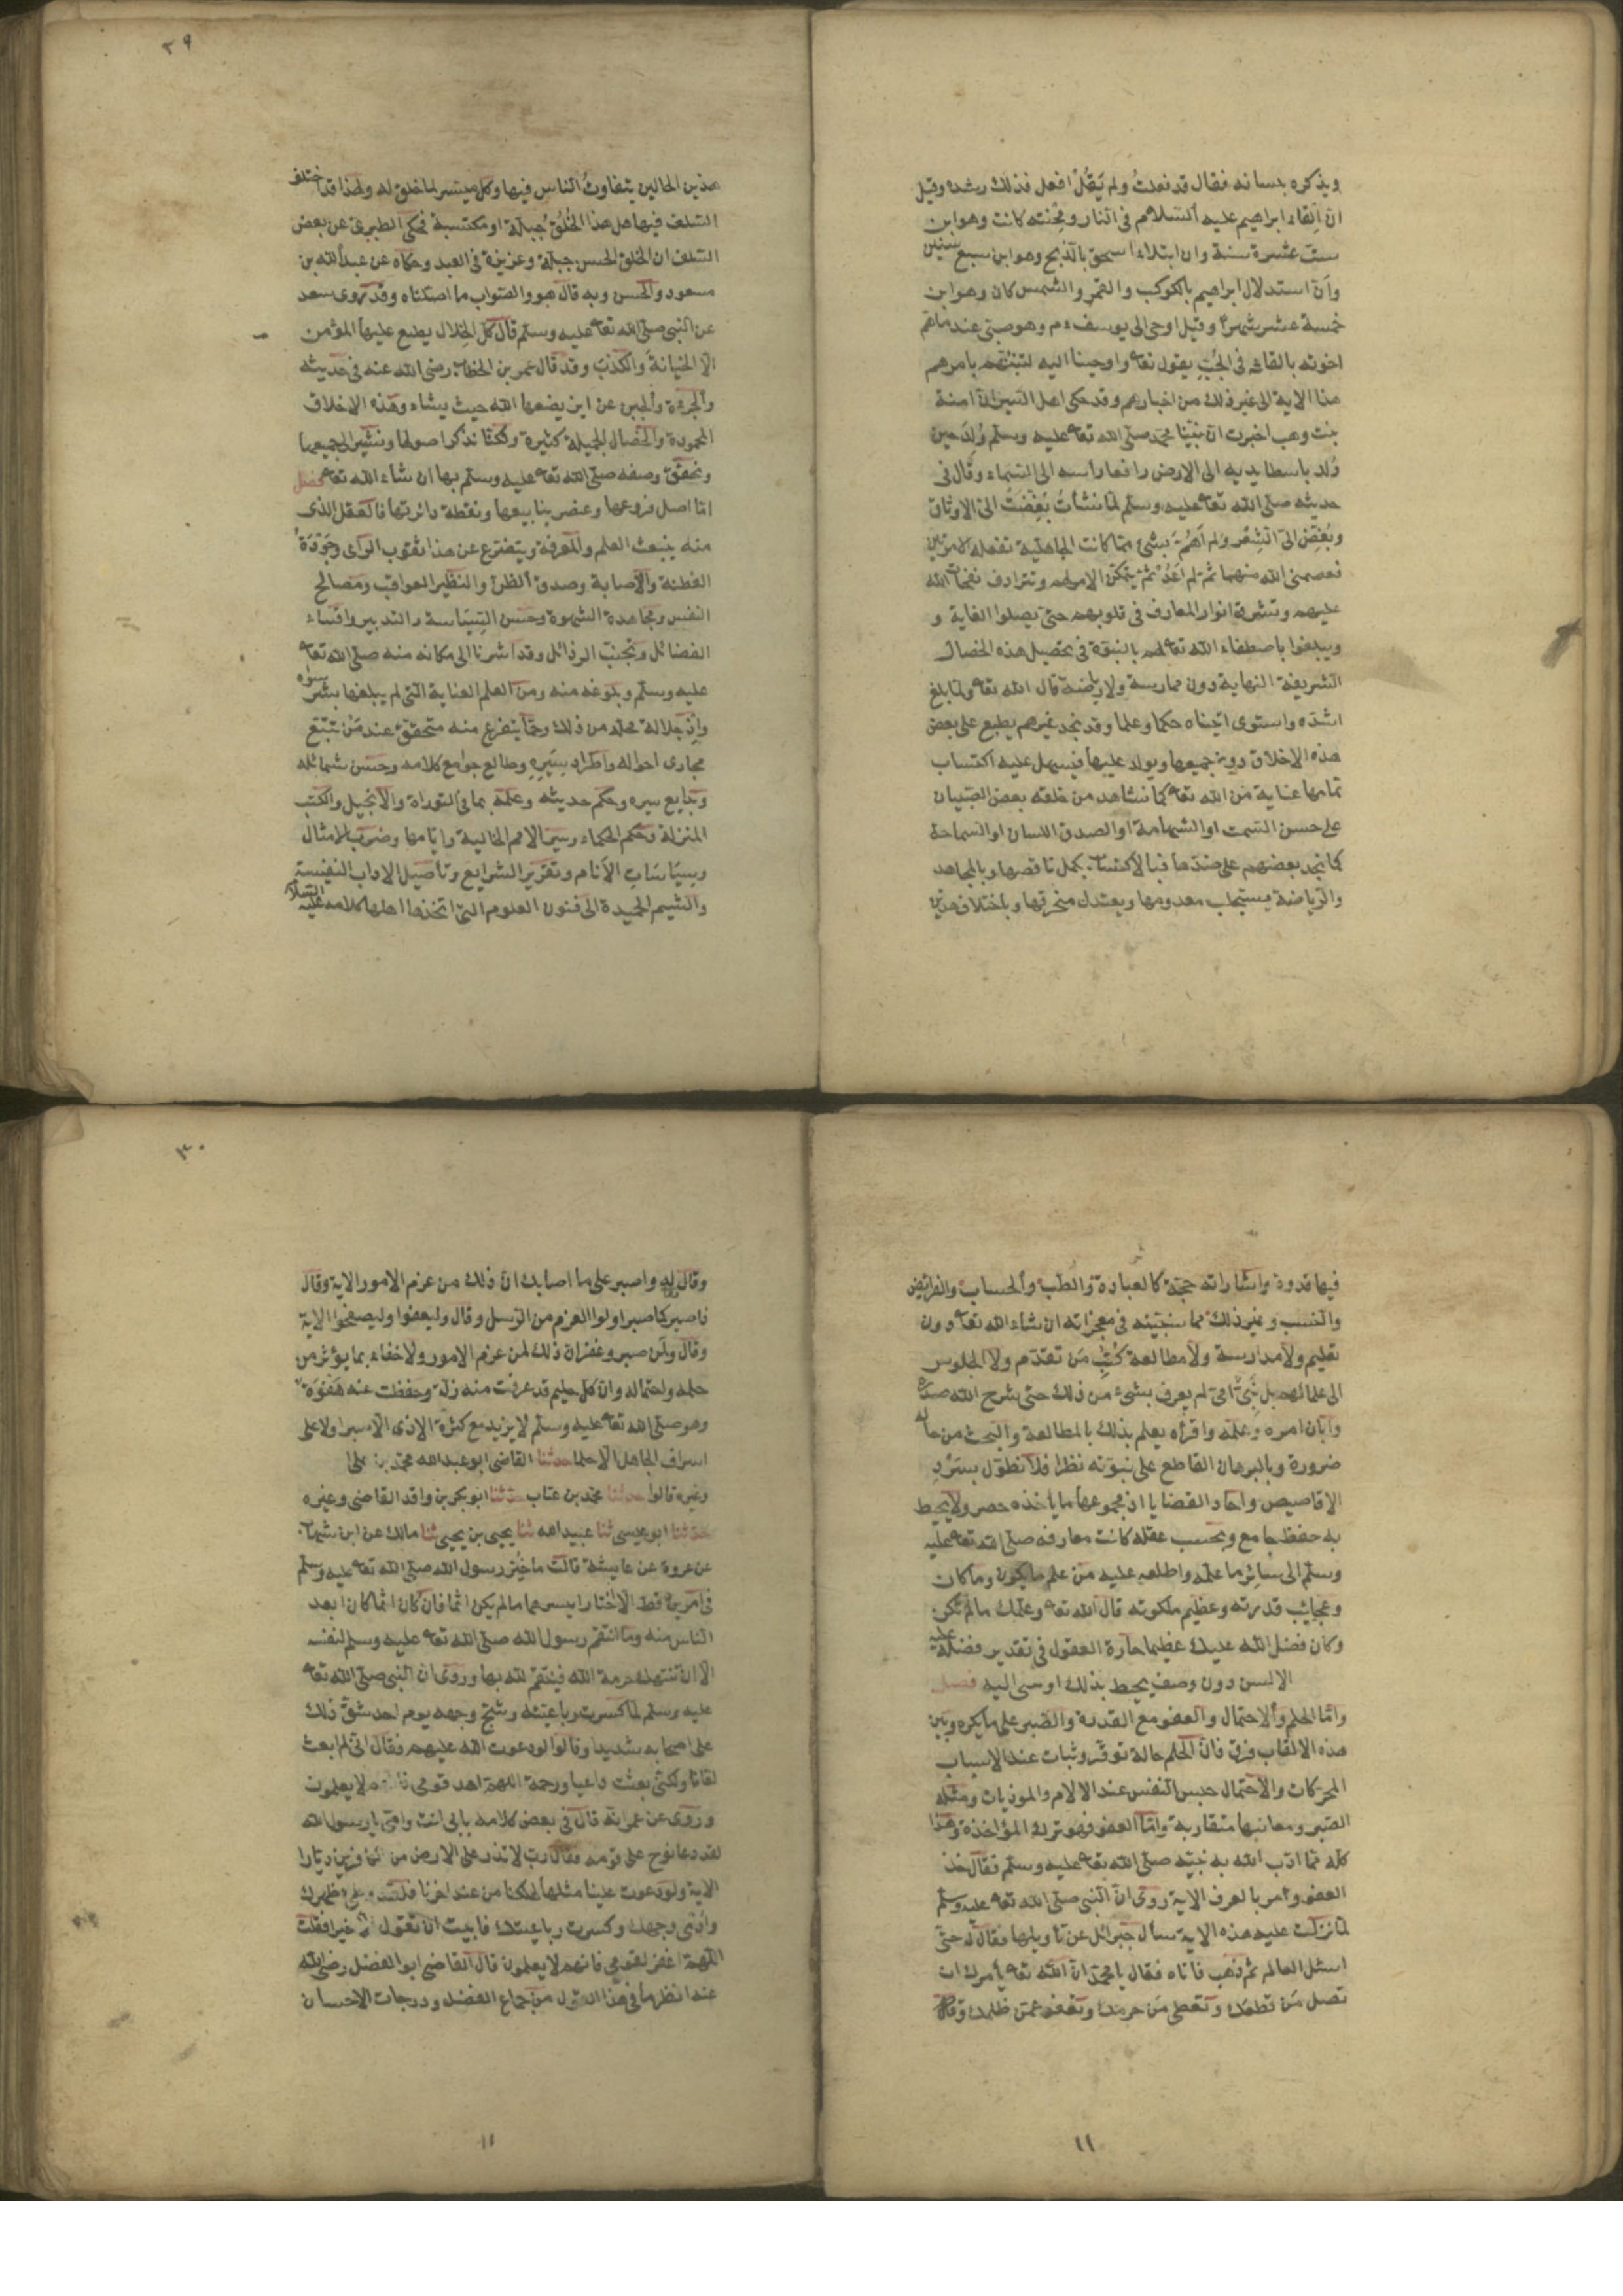 ويذكره بلسانه فقال قد فعلتُ ولم يَقُلْ افعل فذلك رشده وقيل
ان اِلقاء ابراهيم عليه السلام في النار ومِحْنته كانت وهو ابن
ست عشرة سنة وان ابتلاء اسحق بالذبح وهو ابن سبع سنين
وانّ استدلال ابراهيم بالكوكب والقمر والشمس كان وهو ابن
خمسة عشر شهرا وقيل اوحى الى يوسف وهو صبي عند ما همّ
اخوته بالقائه في الجُبّ يقول تعا واوحينا اليه لتنبئنهم بامرهم
هذا الاية الى غير ذلك من اخبارهم وقد حكى اهل السير ان آمنة
بنت وهب اخبرت انّ نبيّنا محمد صلى الله تعا عليه وسلم وُلِدَ حين
وُلد باسطا يديه الى الارض رافعا راسه الى السماء وقال في
حديثه صلى الله تعا عليه وسلم لمّا نشأتُ بُغِّضَتْ الىّ الاوثان
وبُغِّضَ الىّ الشِعْر ولم اَهُمَّ بشئ مما كانت الجاهلية تفعله الا مرتين
فعصمني الله منهما ثم لم اَعُدْ ثمّ يتمكّن الامر لهم وتترادف نفحات الله
عليهم وتشرق انوار المعارف في قلوبهم حتى يصلوا الغاية و
ويبلغوا باصطفاء الله تعا لهم بالنبوّة في تحصيل هذه الخصال
الشريفة النهاية دون ممارسة ولا رياضة قال الله تعا ولما بلغ
اشدّه واستوى اتيناه حكما وعلما وقد نجد غيرهم يطبع على بعض
هذه الاخلاق دون جميعها ويولد عليها فيسهل عليه اكتساب
تمامها عناية من الله تعا كما نشاهد من خلقه بعض الصبيان
على حسن السمت او الشهامة او الصدق اللسان او السماحة
كما نجد بعضهم على ضدّها فبالاكتساب يكمل ناقصها وبالمجاهده
والرياضة يستجلب معدومها ويعتدل منحرفها وباختلاف هذين
٢٩
هذين الحالين يتفاوتُ الناس فيها وكل ميسر لما خلق له ولهذا قد اختلف
السلف فيها هل هذا الخُلُقُ جبلّة او مكتسبة فحكى الطبري عن بعض
السلف ان الخلق الحسن جبلّة وغريزة في العبد وحكاه عن عبد الله بن
مسعود والحسن وبه قال هو والصواب ما اصّلناه وقد روى سعد
عن النبي صلى الله تعا عليه وسلم قال كل الخلال يطبع عليها المؤمن
الّا الخيانة والكذب وقد قال عمر بن الخطاب رضي الله عنه في حديثه
والجرءة والجبن غرائز يضعها الله حيث يشاء وهذه الاخلاق
المحمودة والخصال الجميلة كثيرة ولكنّا نذكر اصولها ونشير الى جميعها
ونحقّق وصفه صلى الله تعا عليه وسلم بها ان شاء الله تعا فصل
امّا اصل فروعها وعنصر ينابيعها ونقطة دائرتها فالعقل الذي
منه ينبعث العلم والمعرفة ويتفرّع عن هذا ثقوب الراي وجَوْدَةُ
الفطنة والاصابة وصدق الظنّ والنظر للعواقب ومصالح
النفس ومجاهدة الشهوة وحسن السِّيَاسة والتدبير واقتناء
الفضائل وتجنّب الرذائل وقد اشرنا الى مكانه منه صلى الله تعا
عليه وسلم وبلوغه منه ومن العلم الغاية التي لم يبلغها بشر سواه
واِذْ جلالة محلّه من ذلك وممّا يتفرع منه متحقق عند مَنْ تتبّع
مجاري احواله واطراد سِيَرِهِ وطالع جوامع كلامه وحسن شمائله
وبدايع سيره وحكم حديثه وعلمه بما في التوراة والانجيل والكتب
المنزلة وحكم الحكماء وسير الامم الخالية وايّامها وضرب الامثال
وسِيَاسَاتِ الاَنام وتقرير الشرايع وتأصيل الاداب النفيسة
والشيم الحميدة الى فنون العلوم التي اتخذها اهلها كلامه عليه السلام
فيها قدوة واشاراته حجّة كالعبادة والطب والحساب والفرائض
والنسب وغير ذلك مما سنبيّنه في معجزاته ان شاء الله تعا دون
تعليم ولا مدارسة ولا مطالعة كُتُبِ مَن تقدّم ولا الجلوس
الى علمائهم بل نبيّ امّي لم يعرف بشئ من ذلك حتى شرح الله صدره
وابان امره وعلّمه واقرأه يعلم بذلك بالمطالعة والبحث من حاله
ضرورة وبالبرهان القاطع على نبوّته نظرا فلا نطوّل بسَرْدِ
الاقاصيص واحاد القضايا اذ مجموعها ما ياخذه حصر ولا يحيط
به حفظ جامع وبحسب عقله كانت معارفه صلى الله تعا عليه
وسلم الى سائر ما علّمه واطلعه عليه من علم ما يكون وما كان
وعجايب قدرته وعظيم ملكوته قال الله تعا وعلّمك ما لم تكن
وكان فضل الله عليك عظيما حارة العقول في تقدير فضله عليه
الالسن دون وصف يحيط بذلك او سى اليه فصل
وامّا الحلم والاحتمال والعفو مع القدرة والصبر على ما يكره وبين
هذه الالقاب فرق فانّ الحلم حالة توقّر وثبات عند الاسباب
المحركات والاحتمال حبس النفس عند الالام والموذيات ومثله
الصبر ومعانيها متقاربة وامّا العفو فهو ترك المؤاخذة وهذا
كله مما ادّب الله به نبيّه صلى الله تعا عليه وسلم فقال خذ
العفو وأمر بالعرف الاية روى انّ النبي صلى الله تعا عليه وسلم
لمّا نزلت عليه هذه الاية سأل جبرائل عن تأويلها فقال له حتى
اسئل العالم ثم ذهب فاتاه فقال يا محمّد انّ الله تعا يأمرك ان
تصل مَن قطعك وتعطى مَن حرمك وتعفو عمّن ظلمك وقال
١١
٣٠
وقال له واصبر على ما اصابك انّ ذلك من عزم الامور الاية وقال
فاصبر كما صبر اولوا العزم من الرسل وقال وليعفوا وليصفحوا الاية
وقال ولَمن صبر وغفر انّ ذلك لمن عزم الامور ولا خفاء بما يؤثر من
حلمه واحتماله وان كلّ حليم قد عرفت منه زلّة وحفظت عنه هَفْوَة
وهو صلى الله تعا عليه وسلم لا يزيد مع كثرة الاذى الّا صبرا وعلى
اسراف الجاهل الّا حلما حدثنا القاضي ابو عبد الله محمّد بن على
وغيره قالوا حدثنا محمّد بن عتاب حدّثنا ابو بكر بن واقد القاضي وغيره
حدّثنا ابو عيسى ثنا عبيد الله ثنا يحيى بن يحيى ثنا مالك عن ابن شهاب
عن عروة عن عايشة قالت ما خُيّر رسول الله صلى الله تعا عليه وسلم
في امرين قط الّا اختار ايسرهما ما لم يكن اثما فان كان اثما كان ابعد
الناس منه وما انتقم رسول الله صلى الله تعا عليه وسلم لنفسه
الّا ان تنتهك حرمة الله فينتقم لله بها وروى ان النبي صلى الله تعا
عليه وسلم لمّا كسرت رباعيّته وشجّ وجهه يوم احد شقّ ذلك
على اصحابه شديدا وقالوا لو دعوت الله عليهم فقال انّى لم ابعث
لعّانا ولكنّى بعثت داعيا ورحمة اللهمّ اهد قومى لا يعلمون
وروى عن عمر انّه قال في بعض كلامه بابى انت وامّى يا رسول الله
لقد دعا نوح على قومه فقال ربّ لا تذر على الارض من الكافرين ديّارا
الاية ولو دعوت علينا مثلها لهلكنا من عند اخرنا فلقد ظهرك
وادمى وجهك وكسرت رباعيتك فابيت ان تقول الّا خيرا فقلت
اللّهمّ اغفر لقومى فانهم لا يعلمون قال القاضي ابو الفضل رضى الله
عنه انظر ما في هذا القول من جماع الفضل ودرجات الاحسان
١١